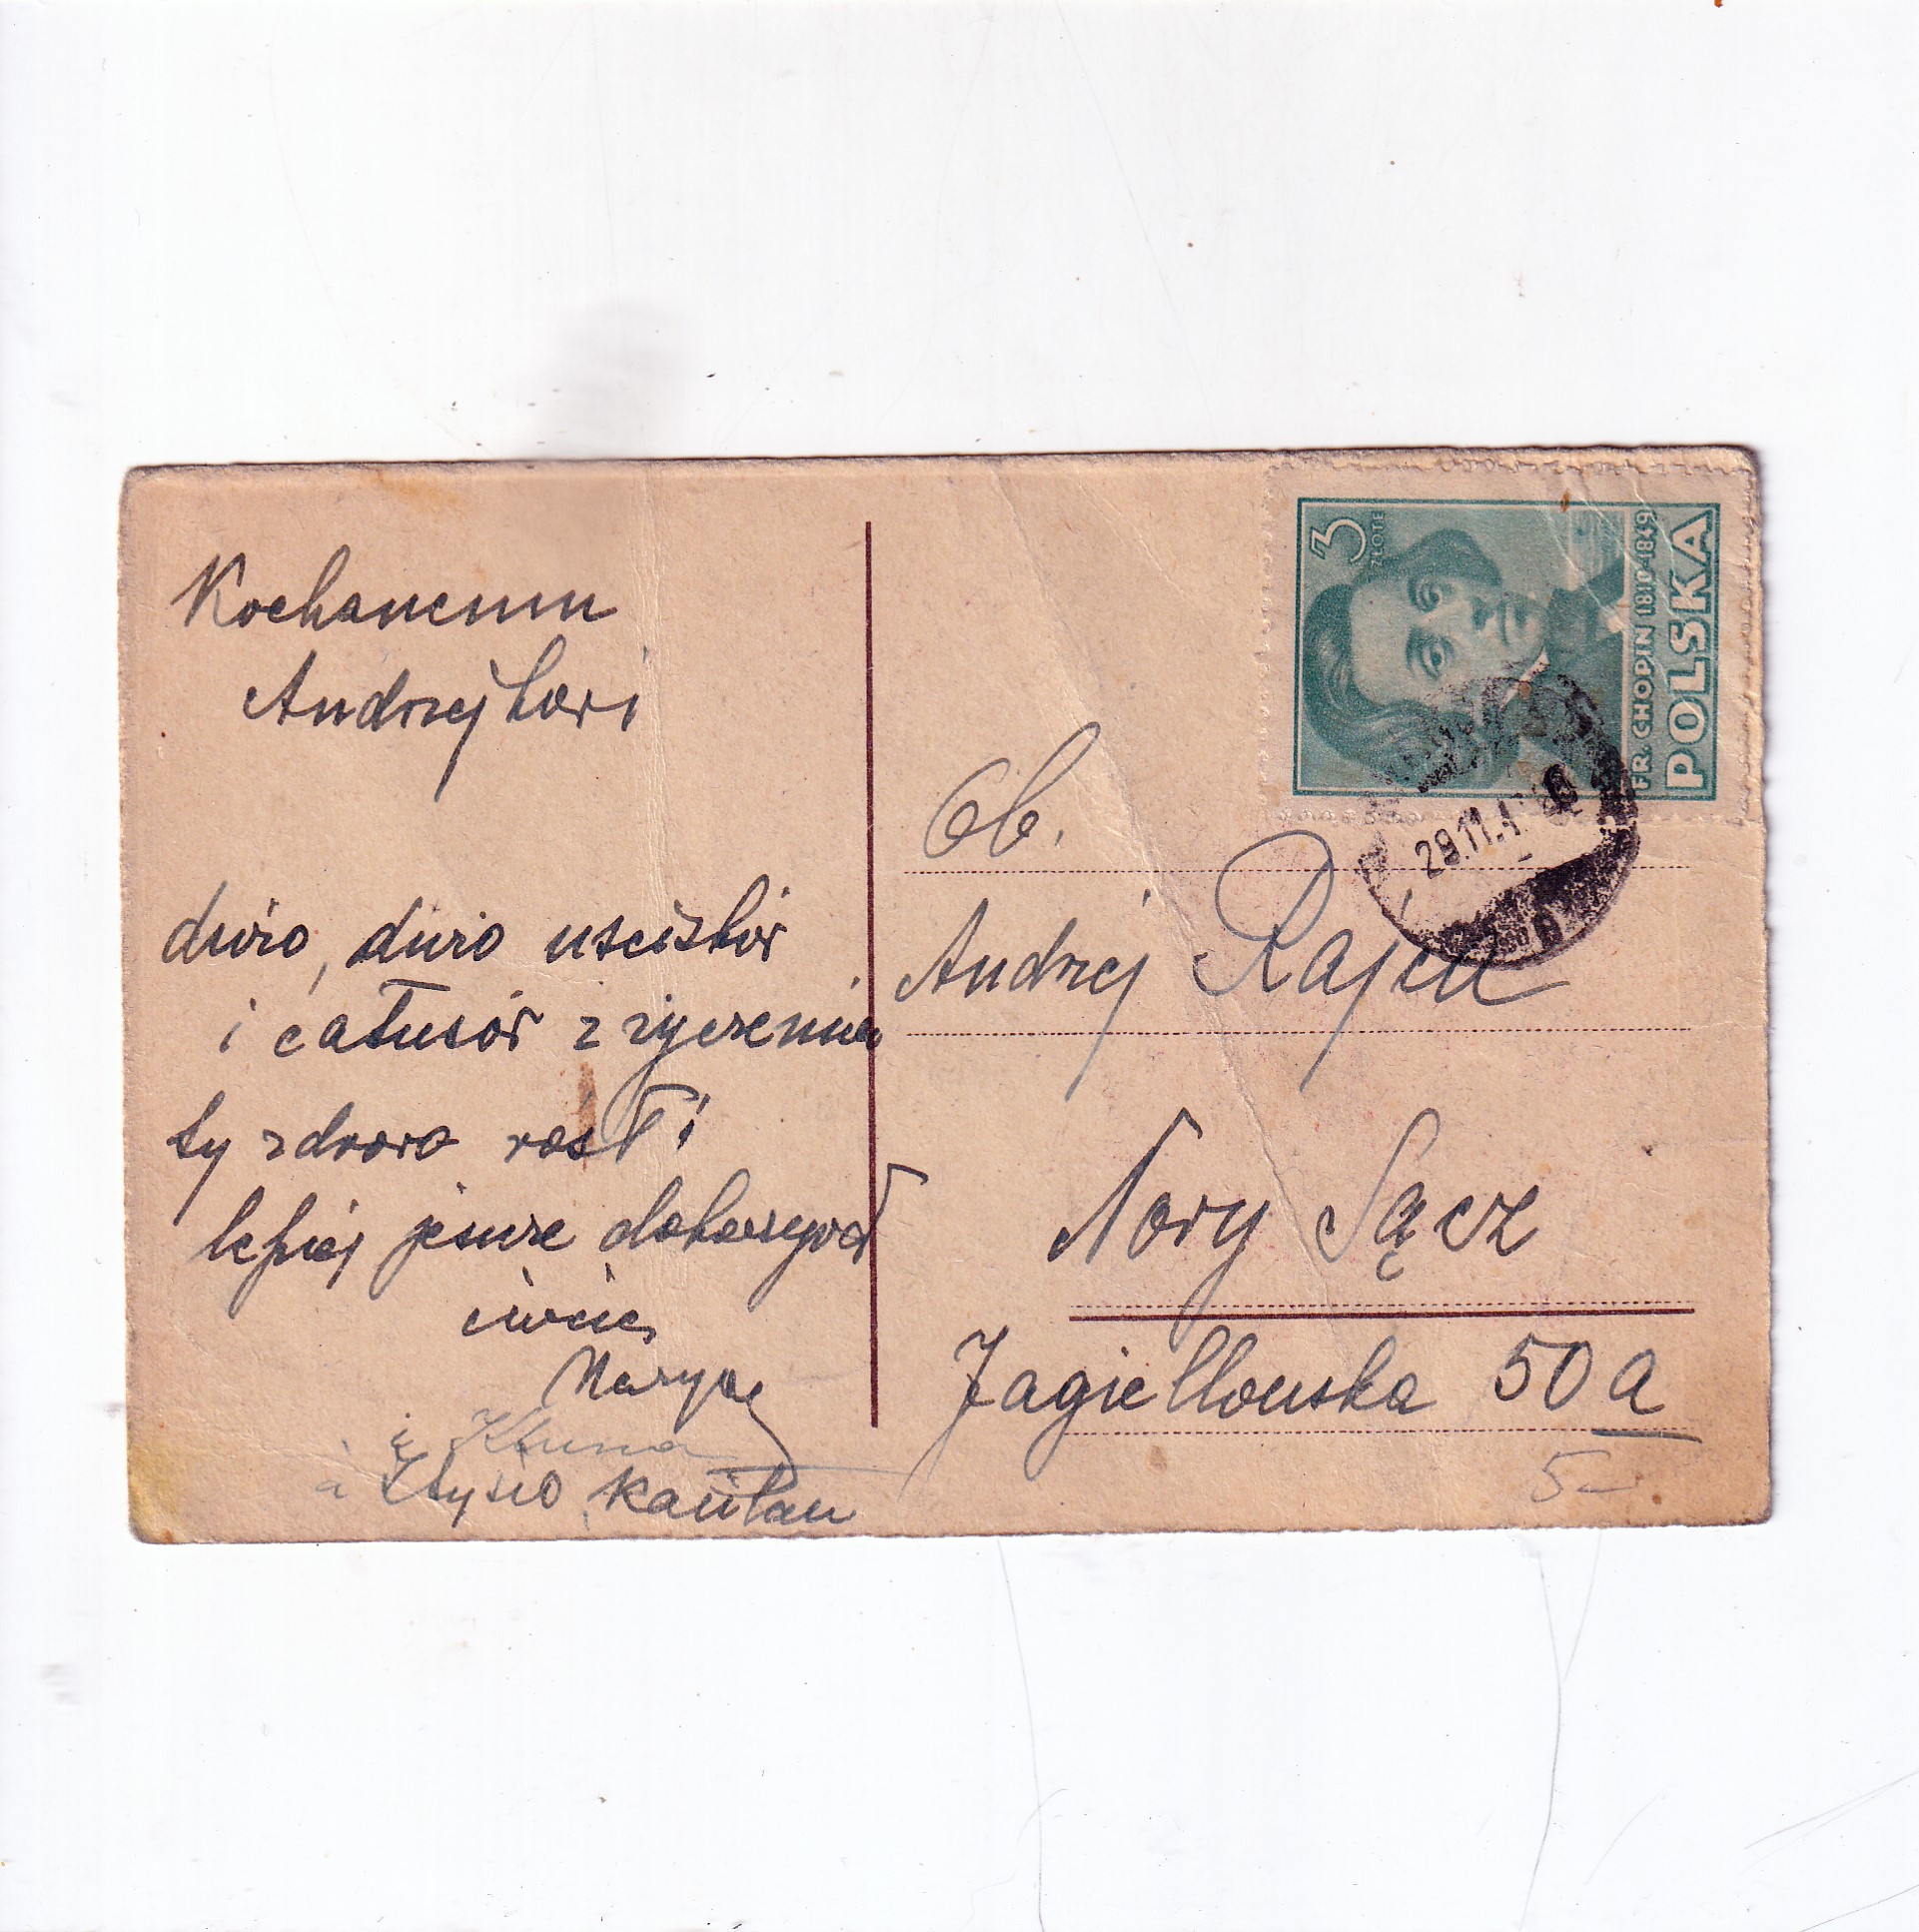 Kochanemu
Andrzejkowi
dużo, dużo uścisków
i całusów z życzeniem
by zdrowo rósł i
lepiej jeszcze dokazywał
ciocie
Maryna
i
i Zbysio
3
ZŁOTE
FR. CHOPIN 1810-1849
POLSKA
29.11.4
Ob.
Andrzej
Nowy Sącz
Jagiellońska 50 a
5